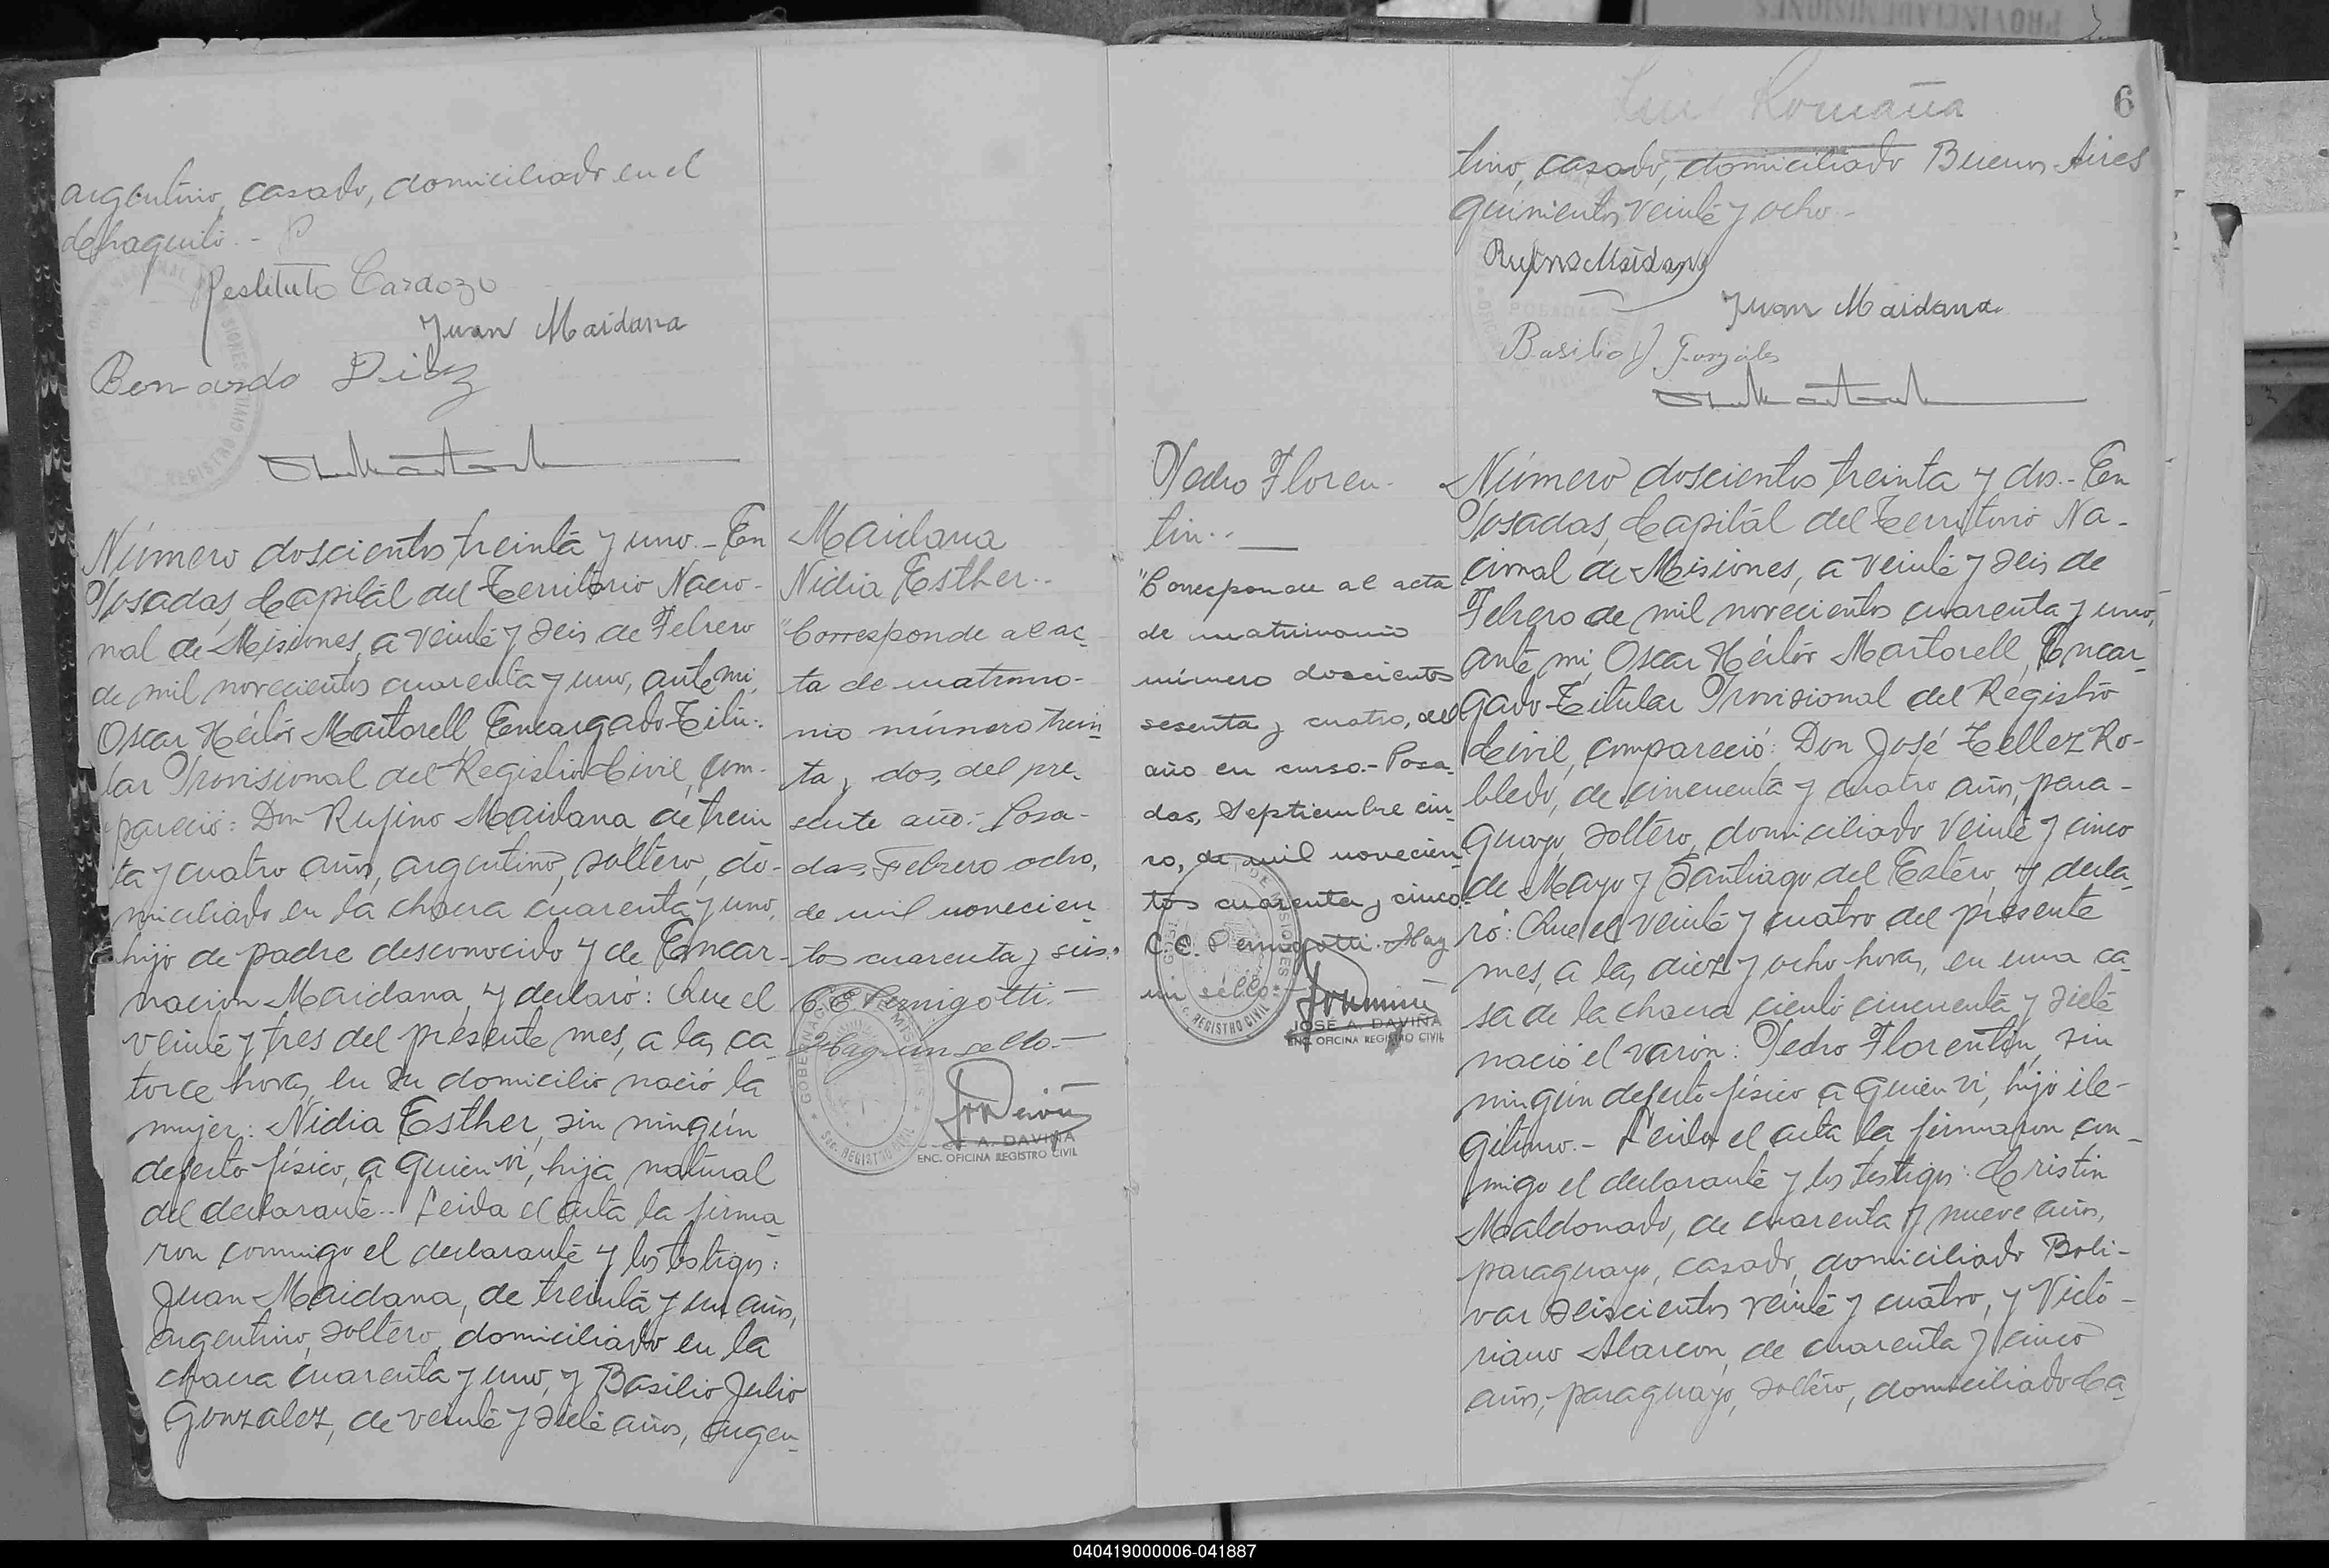 argentino, casado, domiciliado en el
Chaquito.-
Restituto Cardozo
Juan Maidana
Bernardo Diez
REGISTRO CIVIL
Número doscientos treinta y uno.- En
Posadas, Capital del Territorio Nacio-
nal de Misiones, a veinte y seis de Febrero
de mil novecientos cuarenta y uno, ante mi,
Oscar Héctor Martorell, Encargado Titu-
lar Provisional del Registro Civil, com-
pareció: Don Rufino Maidana, de trein
ta y cuatro años, argentino, soltero, do-
miciliado en la chacra cuarenta y uno,
hijo de padre desconocido y de Encar-
nacion Maidana, y declaró: Que el
veinte y tres del presente mes, a las ca-
torce horas, en su domicilio nació la
mujer: Nidia Esther, sin ningún
defecto físico, a quien vi, hija natural
del declarante.- Leida el acta la firma-
ron conmigo el declarante y los testigos:
Juan Maidana, de treinta y un años,
argentino, soltero, domiciliado en la
chacra cuarenta y uno, y Basilio Julio
Gonzalez, de veinte y siete años, argen-
Maidana
Nidia Esther.-
"Corresponde al ac-
ta de matrimo-
nio número trein-
ta y dos, del pre-
sente año.- Posa-
das, Febrero ocho,
de mil novecien-
tos cuarenta y seis.-
C. E. Pernigotti.-
Hay un sello.-
GOBERNACION DE MISIONES
Sec. REGISTRO CIVIL
A. DAVIÑA
ENC. OFICINA REGISTRO CIVIL
Pedro Floren-
tin.-
"Corresponde al acta
de matrimonio
número doscientos
sesenta y cuatro, del
año en curso.- Posa-
das, Septiembre cin-
co, de mil novecien-
tos cuarenta y cinco.-
C. E. Pernigotti. Hay
un sello.-
REGISTRO CIVIL
JOSÉ A. DAVIÑA
ENC. OFICINA REGISTRO CIVIL
PROVINCIA DE MISIONES
Luis Romaña
6
tino, casado, domiciliado Buenos Aires
quinientos veinte y ocho.-
Rufino Maidana
Juan Maidana
Basilio J Gonzáles
Número doscientos treinta y dos.- En
Posadas, Capital del Territorio Na-
cional de Misiones, a veinte y seis de
Febrero de mil novecientos cuarenta y uno,
ante mi, Oscar Héctor Martorell, Encar-
gado Titular Provisional del Registro
Civil, compareció: Don José Tellez Ro-
bledo, de cincuenta y cuatro años, para-
guayo, soltero, domiciliado veinte y cinco
de Mayo y Santiago del Estero, y decla-
ró: Que el veinte y cuatro del presente
mes, a las diez y ocho horas, en una ca-
sa de la chacra ciento cincuenta y siete
nació el varón: Pedro Florentin, sin
ningún defecto físico a quien vi, hijo ile-
gítimo.- Leida el acta la firmaron con-
migo el declarante y los testigos: Cristin
Maldonado, de cuarenta y nueve años,
paraguayo, casado, domiciliado Boli-
var seiscientos veinte y cuatro, y Victo-
riano Alarcon, de cuarenta y cinco
años, paraguayo, soltero, domiciliado Ca-
040419000006-041887